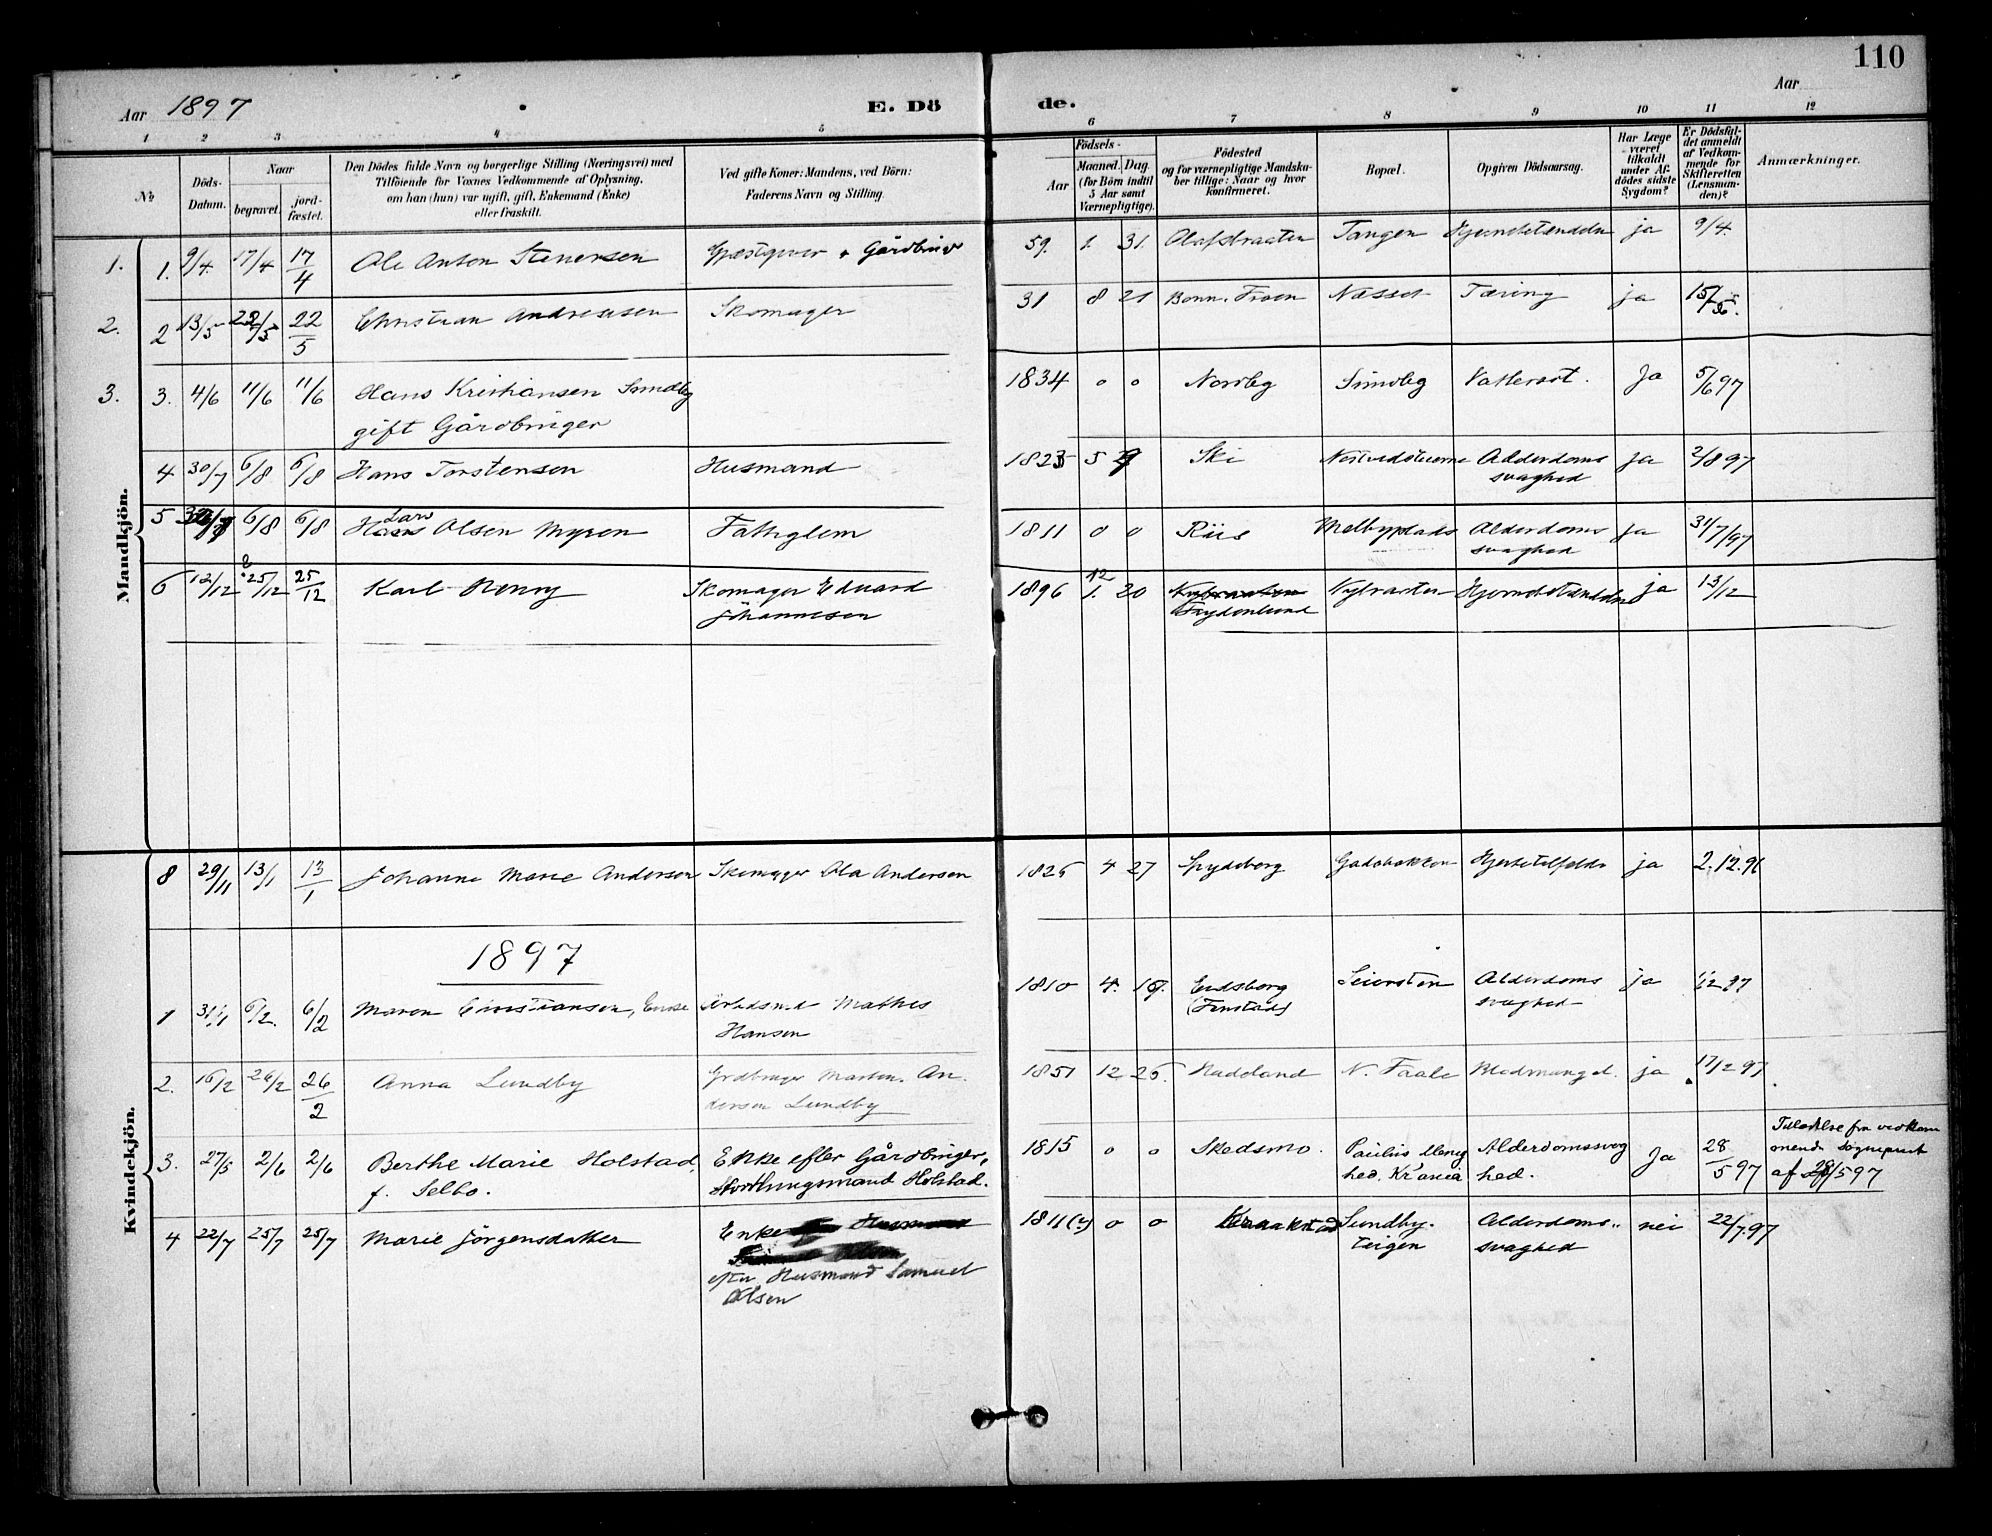 110
Aar 1897
E. Dö
de.
Aar
1 2 3 4 5 6 7 8 9 10 11 12
№
Döds-Datum.
Naar
begravet.
jord-fæstet.
Den Dödes fulde Navn og borgerlige Stilling (Næringsvei) med
Tilföiende for Voxnes Vedkommende af Oplysning,
om han (hun) var ugift, gift, Enkemand (Enke)
eller fraskilt.
Ved gifte Koner: Mandens, ved Börn:
Faderens Navn og Stilling.
Födsels-
Aar
Maaned. Dag.
(for Börn indtil
5 Aar samt
Værnepligtige).
Födested
og for værnepligtige Mandska-
ber tillige: Naar og hvor
konfirmeret.
Bopæl.
Opgiven Dödsaarsag.
Har Læge
været
tilkaldt
under Af-
dödes sidste
Sygdom?
Er Dödsfal-
det anmeldt
af Vedkom-
mende for
Skifteretten
(Lensman-
den)?
Anmærkninger.
Mandkjön.
1. 1. 9/4 17/4 17/4 Ole Anton Stenersen Gjæstgiver + Gårdbruger 59. 1. 31. Olafsbraaten Tangen Hjernebetændelse ja 9/4.
2. 2 13/5 22/5 22/5 Christian Andreasen Skomager 31 8 21 Bonn. Froen Næsset Tæring ja 15/5.
3. 3. 4/6 11/6 11/6 Hans Kristiansen Sundby 1834 0 0 Nordby Sundby Vattersot. Ja 5/6 97
gift Gårdbruger
4 30/7 6/8 6/8 Hans Torstensen Husmand 1825 5 9 Ski Alderdoms ja 2/8 97
svaghed
5 6/8 6/8 Lars Olsen Myren Fattiglem 1811 0 0 Riis Melbyplads Alderdoms ja 31/7/97
svaghed
6 12/12 25/12 25/12 Karl Henry Skomager Eduard 1896 12 1. 20 Nybraaten Nybraaten Hjernebetændelse ja 13/12
Johannesen Frydenlund
Kvindekjön.
8 29/11 13/1 13/1 Johanne Marie Andersen Skomager Ola Andersen 1826 4 27 Spydeberg Gadebakken Hjertetilfælde ja 2.12.96
1897
1 31/1 6/2. 6/2 Maren Christiansen, Enke Arbeidsmd Mathis 1810 4. 19. Eidsberg Seiersten Alderdoms ja 1/2 97
Hansen (Finstad) svaghed
2. 16/2 26/2 26/2 Anna Lundby Grdbruger Marten. An- 1851 12 26. Hadeland N. Faale Blodmangel. ja 17/2 97.
dersen Lundby
3. 27/5 2/6 2/6 Berthe Marie Holstad, Enke efter Gårdbruger, 1815 0 0 Skedsmo. Paulus Menig Alderdomssvag Ja 28/5 97 Tilladelse fra vedkom
f. Selbo. Storthingsmand Holstad. hed, Krania hed. mende Sogneprest
af 28/5 97
4 22/7 25/7 25/7 Marie Jörgensdatter Enke 1811(?) 0 0 Kraakstad Sundby- Alderdoms- nei 22/7.97
teigen svaghed
efter Husmand Samuel
Olsen